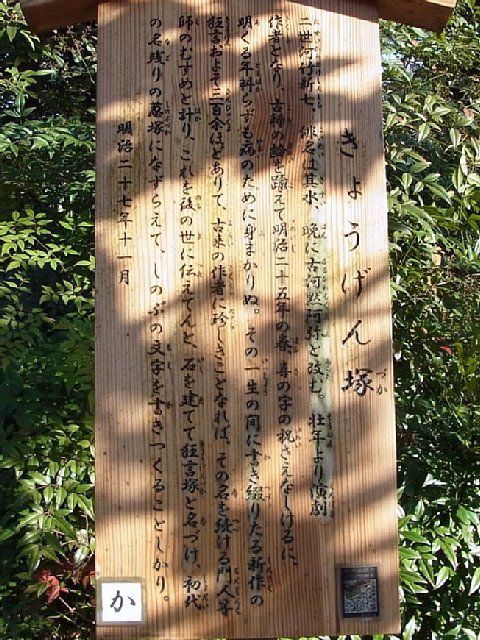 きょうげん塚
づか
二世河竹新七、俳名は其水、晩に古河黙阿弥と改む。壮年より演劇
作者となり、古稀の齢を踰えて明治二十五年の春、喜の字の祝さえなしけるに、
明くる年料らずも病のために身まかりぬ。その一生の間に書き綴りたる新作の
狂言およそ三百余ほどありて、古来の作者に珍しきことなれば、その名を後ける門人等
師のむすめと計り、これを後の世に伝えてんと、石を建てて狂言塚と名づけ、初代
の名残りの葱塚になずらえて、しのぶの文字を書きつくることしかり。
明治二十七年十一月
か